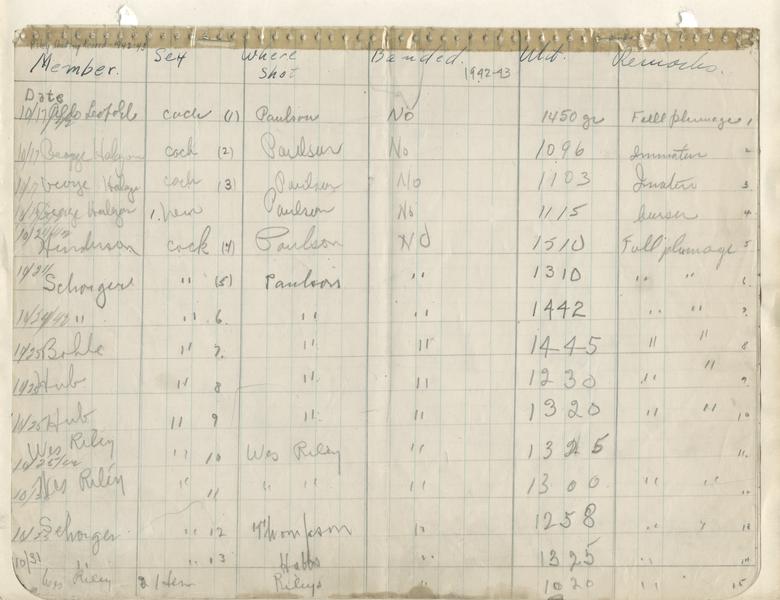 Member. Sex Where Shot Banded. 1942-43 Wt. Remarks.
Date
10/17 Aldo Leopold cock (1) Paulson No 1450 gr Full plumage 1
10/17 George Halzen cock (2) Paulson No 1096 2
George cock (3) Paulson No 1103 3
George Halzen 1. hen Paulson No 1115 4
Henderson cock (4) Paulson No 1510 Full plumage 5
Schorger " (5) Paulson " 1310 " " 6.
" " 6. " " 1442 " " 7.
10/25 Buhle " 7. " " 1445 " " 8
Hub " 8 " " 1230 " " 9.
10/25 Hub " 9 " " 1320 " " 10
Wes Riley " 10 Wes Riley " 1325 " " 11.
10/25/42
Wes Riley " 11 " " " " 1300 " "
Schorger " 12 Thompson " 1258 " " 13
10/31 " " 13 Hobbs " 1325 " " 14
Wes Riley 2/Hen Rileys " 1020 " " 15